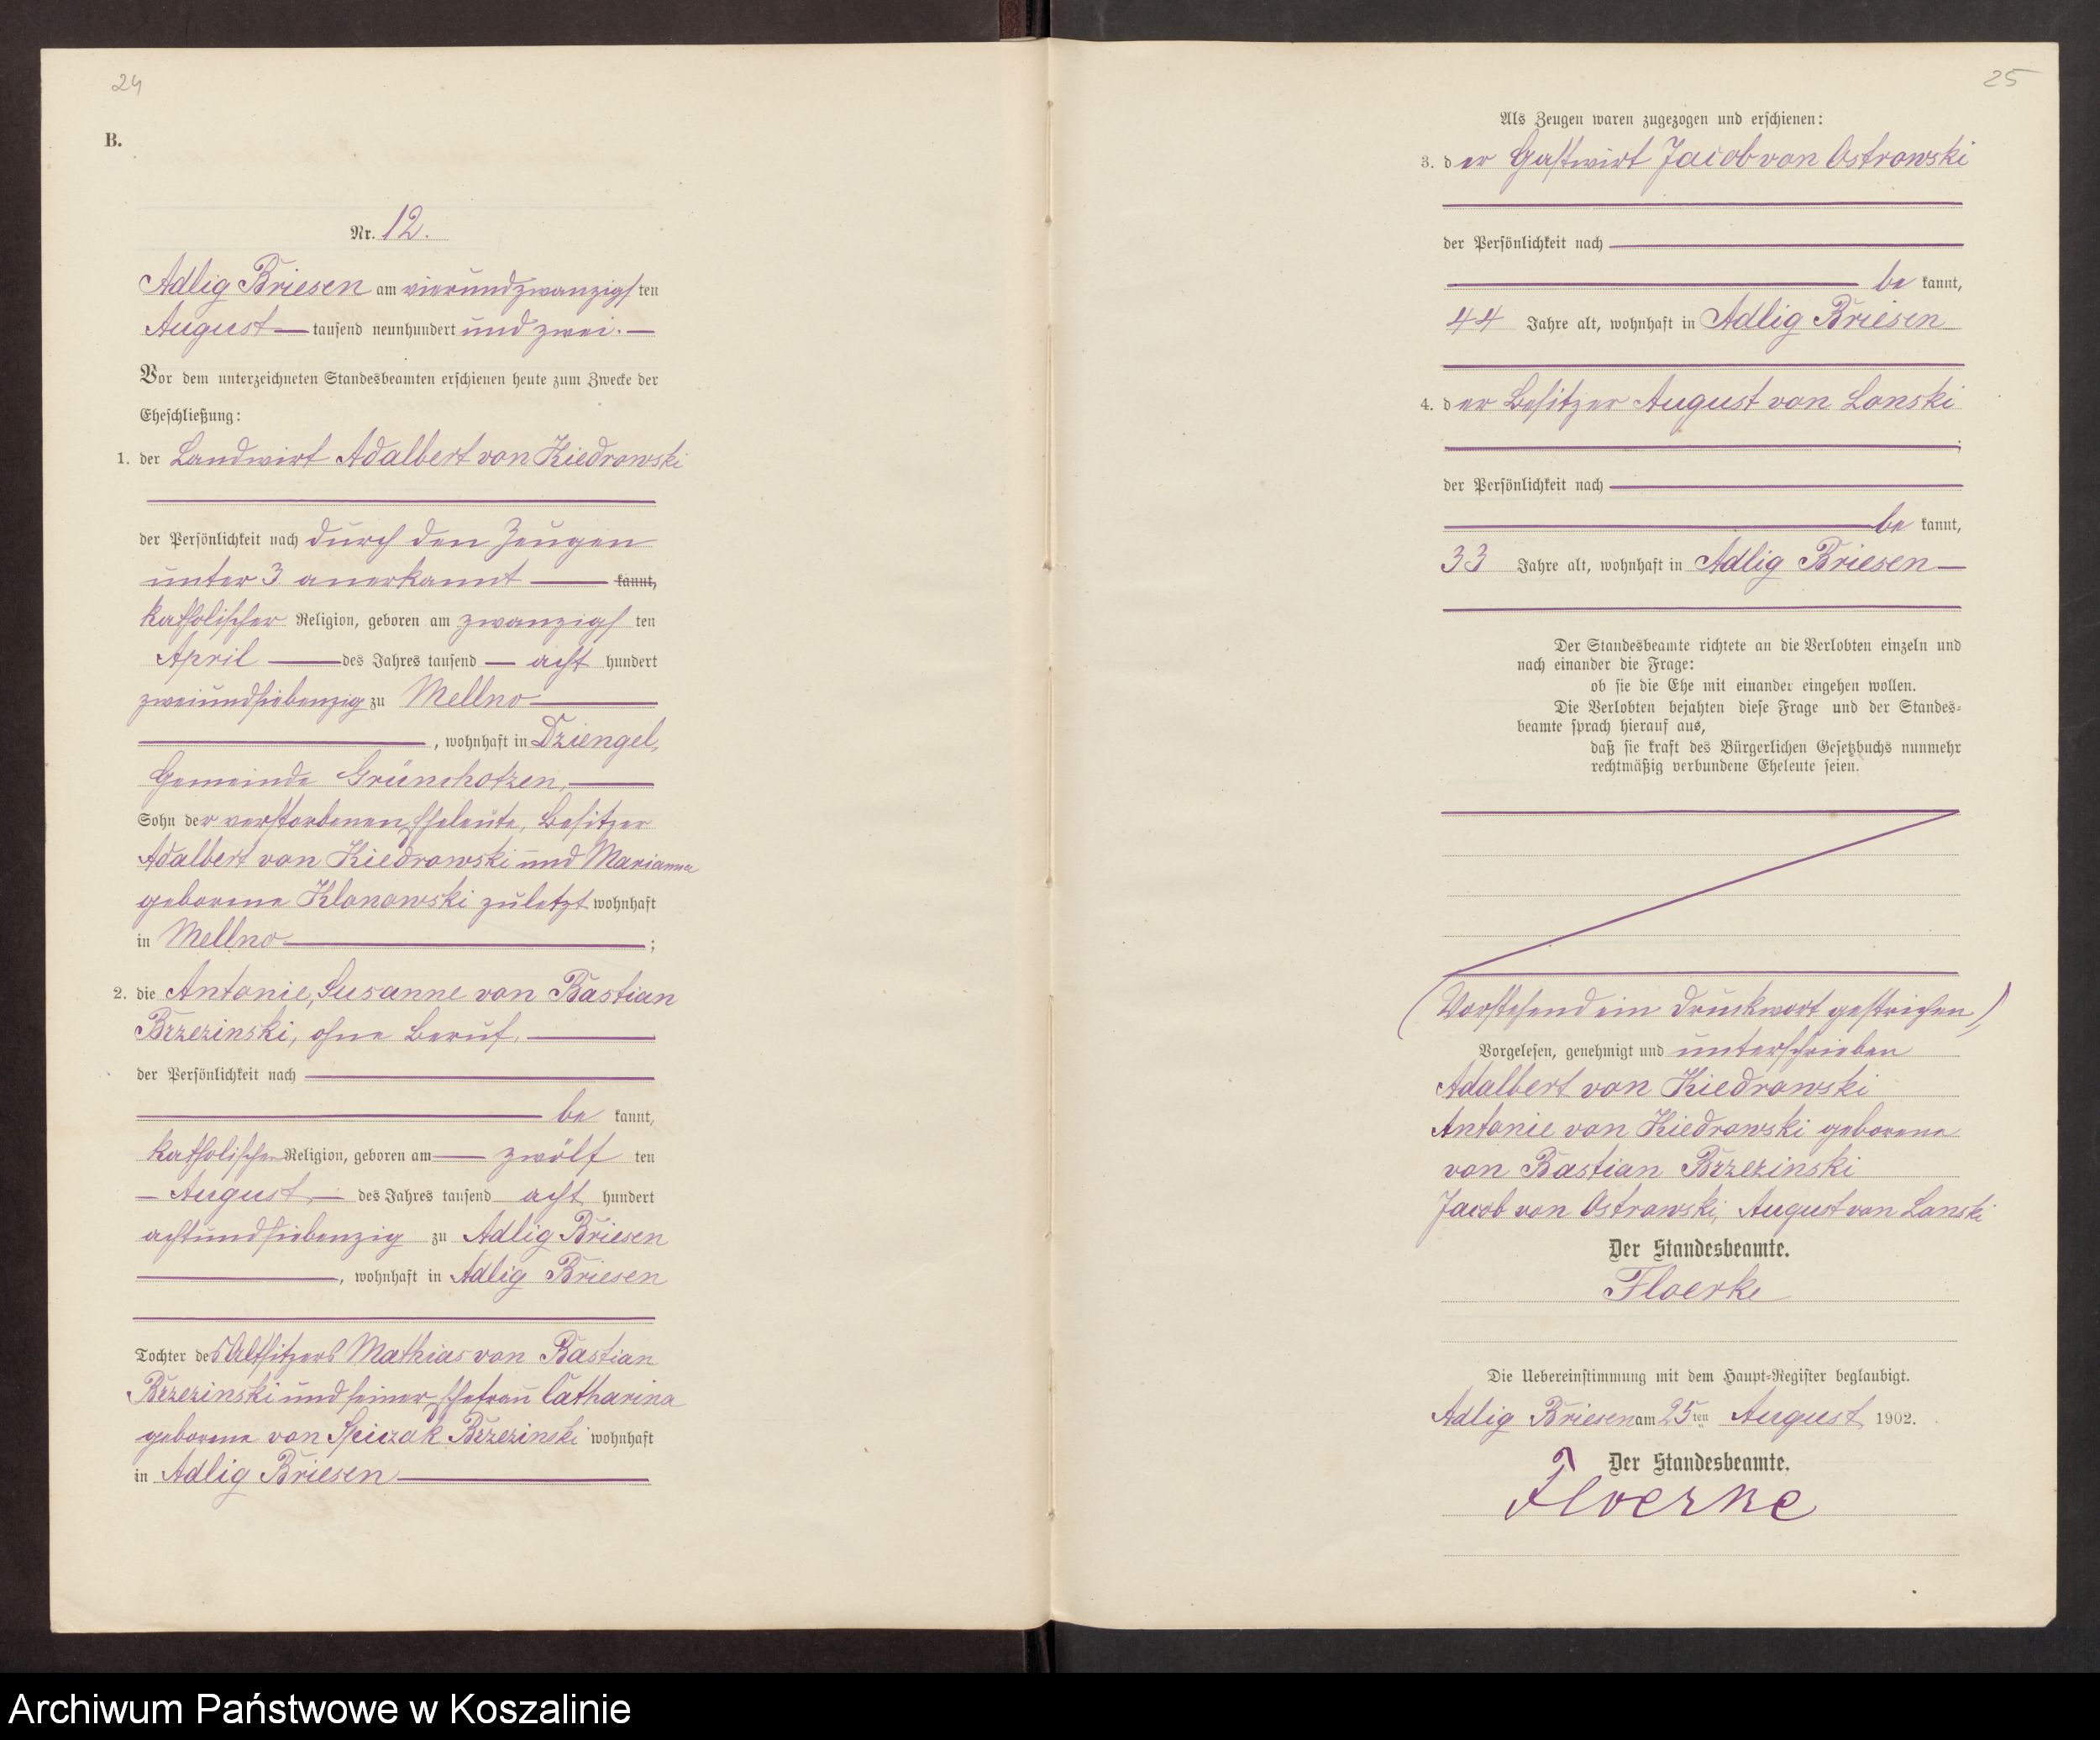 24
B.
Nr. 12.
Adlig Briesen am vierundzwanzigsten
August tausend neunhundert und zwei.
Vor dem unterzeichneten Standesbeamten erschienen heute zum Zwecke der
Eheschließung:
1. der Landwirt Adalbert von Kiedrowski
der Persönlichkeit nach durch den Zeugen
unter 3 anerkannt kannt,
katholischer Religion, geboren am zwanzigsten
April des Jahres tausend acht hundert
zweiundsiebenzig zu Mellno
, wohnhaft in Dziengel,
Gemeinde Grünchotzen,
Sohn der verstorbenen Eheleute, Besitzer
Adalbert von Kiedrowski und Marianna
geborene Klonowski zuletzt wohnhaft
in Mellno ;
2. die Antonie, Susanne von Bastian
Brzezinski, ohne Beruf,
der Persönlichkeit nach
be kannt,
katholischer Religion, geboren am zwölf ten
August des Jahres tausend acht hundert
achtundsiebenzig zu Adlig Briesen
, wohnhaft in Adlig Briesen
Tochter des Altsitzers Mathias von Bastian
Brzezinski und seiner Ehefrau Catharina
geborene von Spiczak Brzezinski wohnhaft
in Adlig Briesen
25
Als Zeugen waren zugezogen und erschienen:
3. der Gastwirt Jacob von Ostrowski
der Persönlichkeit nach
be kannt,
44 Jahre alt, wohnhaft in Adlig Briesen
4. der Besitzer August von Lonski
;
der Persönlichkeit nach
be kannt,
33 Jahre alt, wohnhaft in Adlig Briesen
Der Standesbeamte richtete an die Verlobten einzeln und
nach einander die Frage:
ob sie die Ehe mit einander eingehen wollen.
Die Verlobten bejahten diese Frage und der Standes-
beamte sprach hierauf aus,
daß sie kraft des Bürgerlichen Gesetzbuchs nunmehr
rechtmäßig verbundene Eheleute seien.
(Vorstehend ein Druckwort gestrichen)
Vorgelesen, genehmigt und unterschrieben
Adalbert von Kiedrowski
Antonie von Kiedrowski geborene
von Bastian Brzezinski
Jacob von Ostrowski, August von Lonski
Der Standesbeamte.
Floerke
Die Uebereinstimmung mit dem Haupt-Register beglaubigt.
Adlig Briesen am 25ten August 1902.
Der Standesbeamte.
Floerke
Archiwum Państwowe w Koszalinie